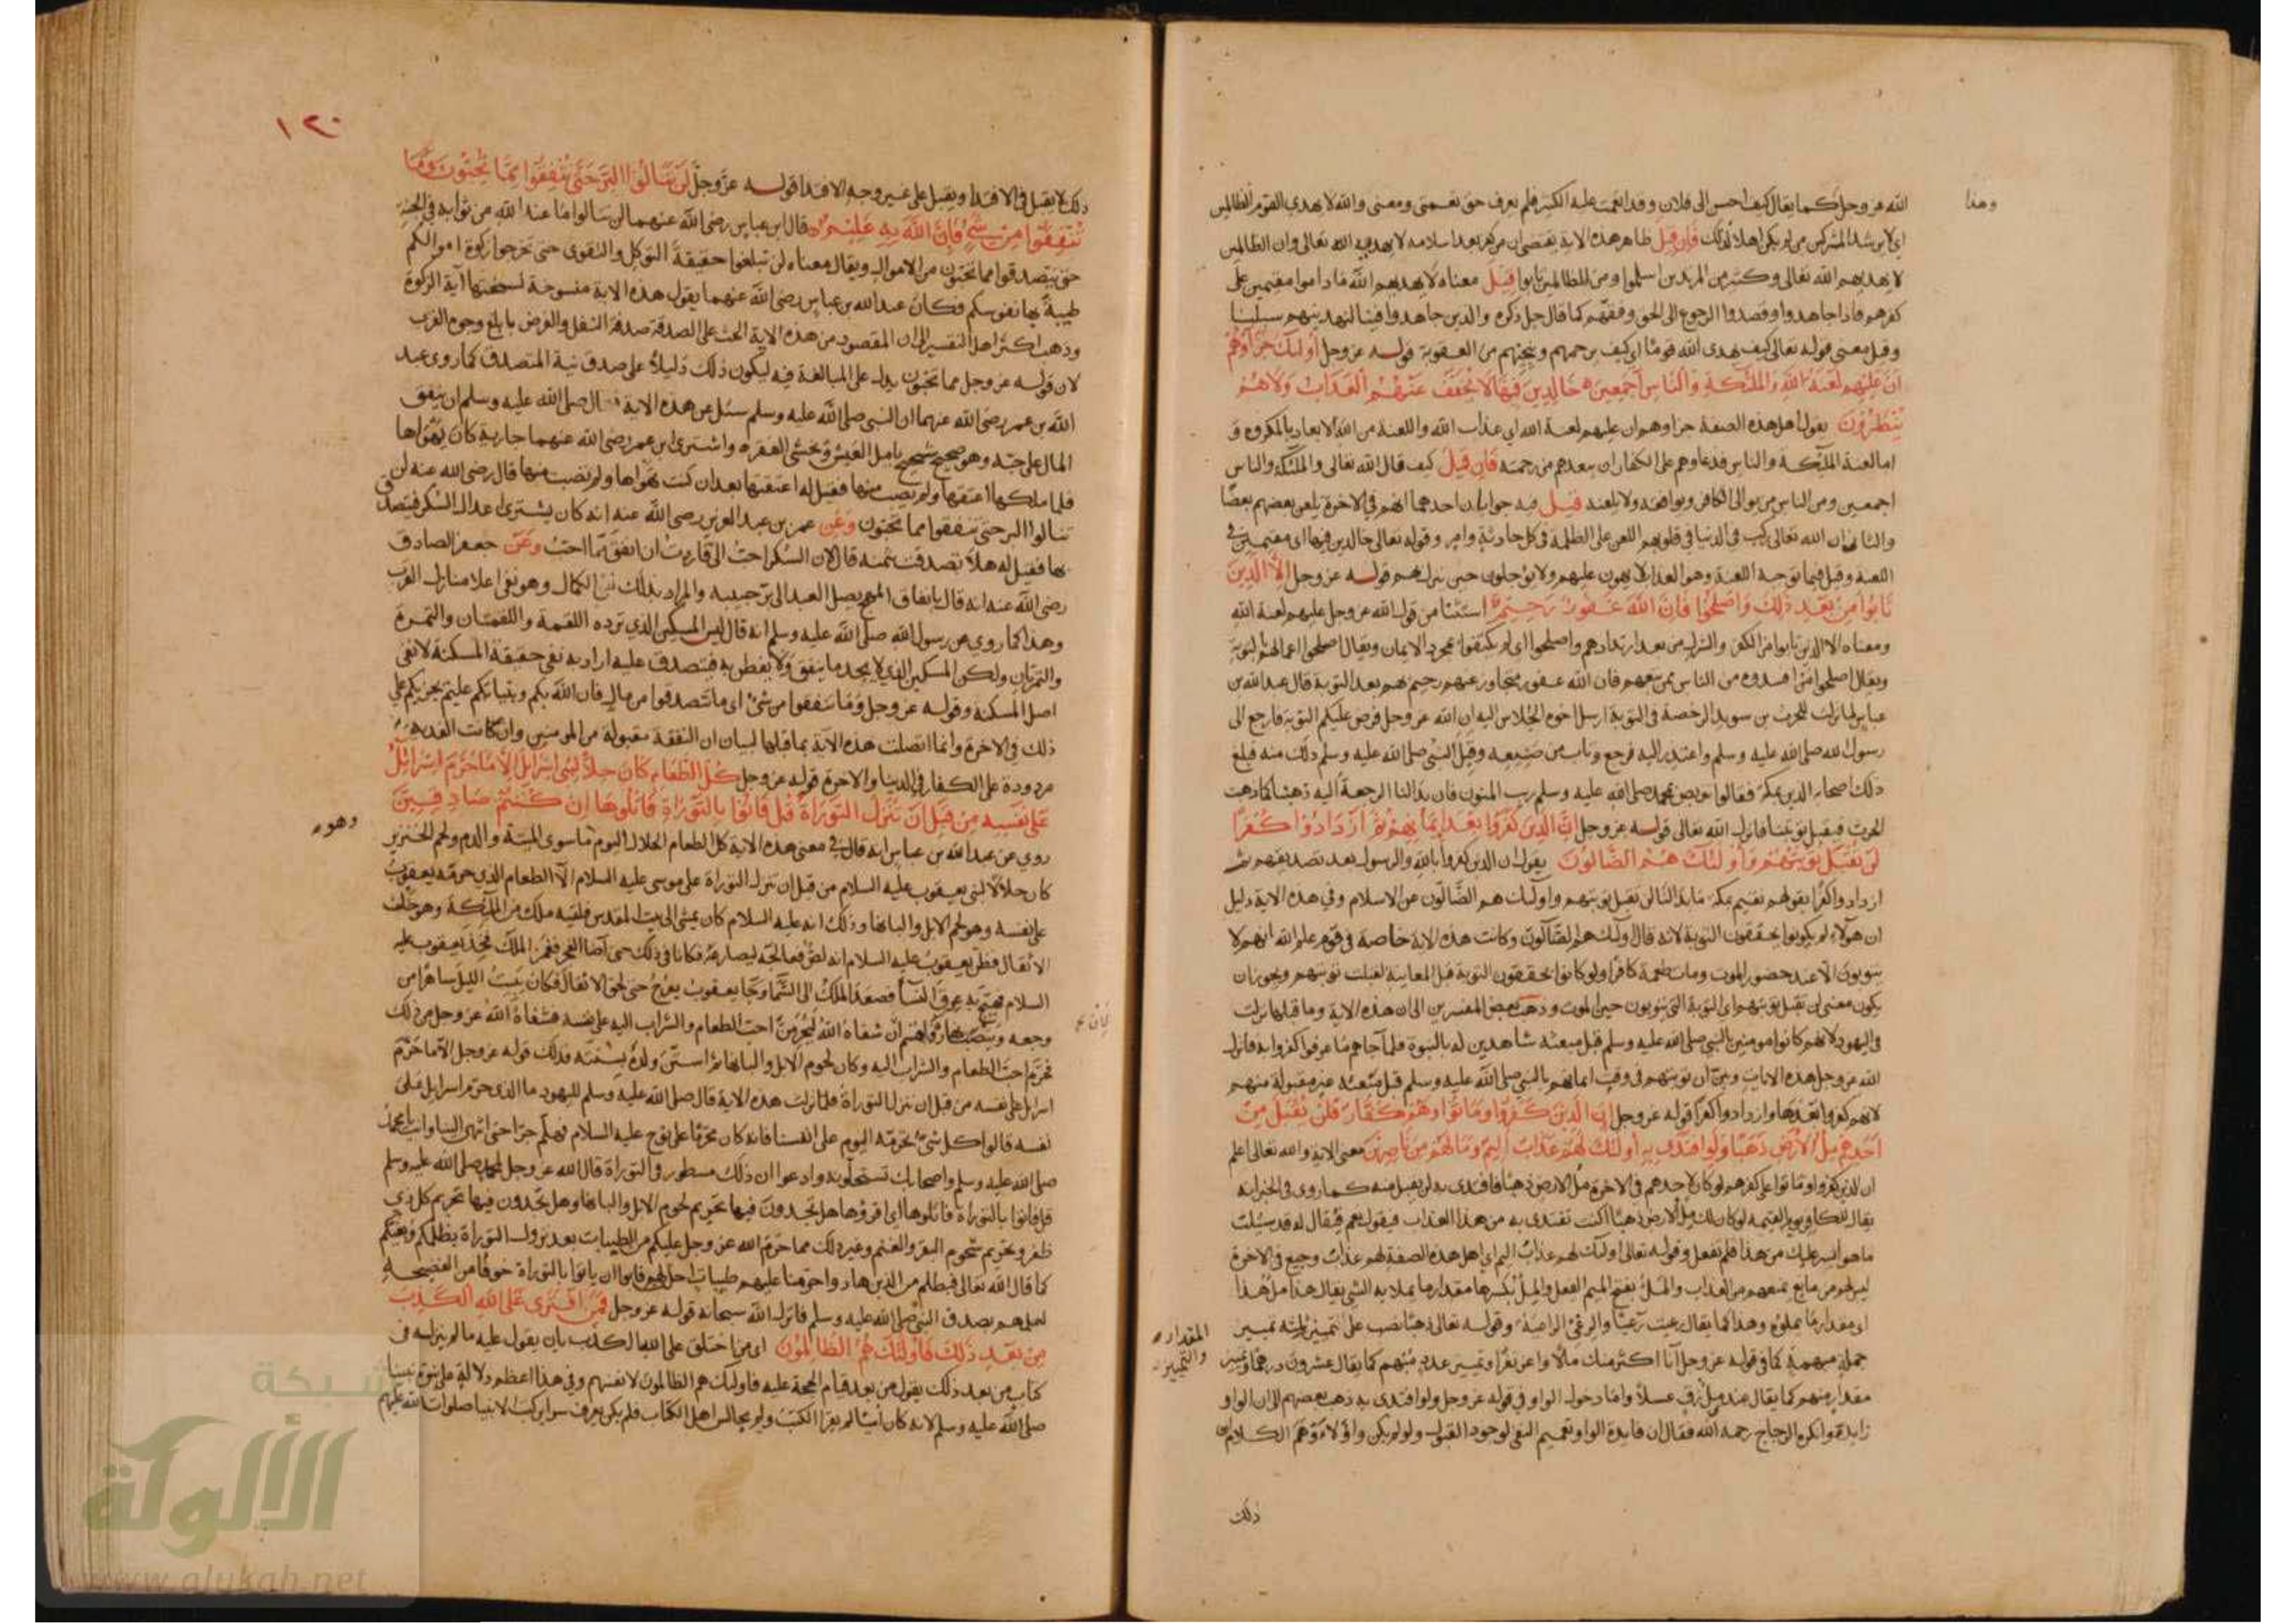 وهذا
الله عز وجل كما يقال كيف احسن الى فلان وقد انعمت عليه الكثير فلم يعرف حق نعمتي ومعنى والله لا يهدي القوم الظالمين
اي لا يرشد المشركين من لم يكن اهلا لذلك فان قيل ظاهر هذه الاية يقتضي ان من كفر بعد اسلامه لا يهديه الله تعالى وان الظالمين
لا يهديهم الله تعالى وكثير من المرتدين اسلموا ومن الظالمين تابوا قيل معناه لا يهديهم الله ما داموا مقيمين على
كفرهم فاذا جاهدوا وقصدوا الرجوع الى الحق وفقهم كما قال جل ذكره والذين جاهدوا فينا لنهدينهم سبلنا
وقيل معنى قوله تعالى كيف يهدي الله قوما اي كيف يرحمهم وينجيهم من العقوبة قوله عز وجل اولئك جزاؤهم
ان عليهم لعنة الله والملئكة والناس اجمعين خالدين فيها لا يخفف عنهم العذاب ولا هم
ينظرون يقول اهل هذه الصفة جزاوهم ان عليهم لعنة الله اي عذاب الله واللعنة من الله الابعاد بالمكروه و
اما لعنة الملئكة والناس فدعاوهم على الكفار ان يبعدهم من رحمته فان قيل كيف قال الله تعالى والملئكة والناس
اجمعين ومن الناس من يوالي الكافر ويوافقه ولا يلعنه قيل فيه جوابان احدهما انهم في الاخرة يلعن بعضهم بعضا
والثاني ان الله تعالى ركب في الدنيا في قلوبهم اللعن على الظلمة في كل حادثة وامر وقوله تعالى خالدين فيها اي مقيمين في
اللعنة وقيل فيما توجبه اللعنة وهو العذاب لا يهون عليهم ولا يؤجلون حين ينزل بهم قوله عز وجل الا الذين
تابوا من بعد ذلك واصلحوا فان الله غفور رحيم استثنا من قول الله عز وجل عليهم لعنة الله
ومعناه الا الذين تابوا من الكفر والشرك من بعد ارتدادهم واصلحوا اي لم يكتفوا بمجرد الايمان ويقال اصلحوا اعمالهم بالتوبة
ويقال اصلحوا من افسدوه من الناس ممن تبعهم فان الله غفور متجاوز عنهم رحيم بهم بعد التوبة قال عبد الله بن
عباس لما نزلت للحرث بن سويد الرخصة في التوبة ارسل اخوه الجلاس اليه ان الله عز وجل فرض عليكم التوبة فارجع الى
رسول الله صلى الله عليه وسلم واعتذر اليه فرجع وتاب من صنيعه وقبل النبي صلى الله عليه وسلم ذلك منه فبلغ
ذلك اصحابه الذين بمكة فقالوا نتربص بمحمد صلى الله عليه وسلم ريب المنون فان بدا لنا الرجعة اليه ذهبنا كما ذهب
الحرث فيقبل توبتنا فانزل الله تعالى قوله عز وجل ان الذين كفروا بعد ايمانهم ثم ازدادوا كفرا
لن تقبل توبتهم واولئك هم الضالون يقول ان الذين كفروا بالله والرسول بعد تصديقهم ثم
ازدادوا كفرا بقولهم نقيم بمكة ما بدا لنا لن تقبل توبتهم واولئك هم الضالون عن الاسلام وفي هذه الاية دليل
ان هولاء لم يكونوا يحققون التوبة لانه قال واولئك هم الضالون وكانت هذه الاية خاصة في قوم علم الله انهم لا
يتوبون الا عند حضور الموت ومات طعمة كافرا ولو كانوا يحققون التوبة قبل المعاينة لقبلت توبتهم ويجوز ان
يكون معنى لن تقبل توبتهم اي التوبة التي يتوبون حين الموت وذهب بعض المفسرين الى ان هذه الاية وما قبلها نزلت
في اليهود لانهم كانوا مومنين بالنبي صلى الله عليه وسلم قبل مبعثه شاهدين له بالنبوة فلما جاءهم ما عرفوا كفروا به فانزل
الله عز وجل هذه الايات وبين ان توبتهم في وقت ايمانهم بالنبي صلى الله عليه وسلم قبل مبعثه غير مقبولة منهم
لانهم كفروا بعدها وازدادوا كفرا قوله عز وجل ان الذين كفروا وماتوا وهم كفار فلن يقبل من
احدهم ملء الارض ذهبا ولو افتدى به اولئك لهم عذاب اليم وما لهم من ناصرين معنى الاية والله تعالى اعلم
ان الذين كفروا وماتوا على كفرهم لو كان لاحدهم في الاخرة ملء الارض ذهبا فافتدى به لن يقبل منه كما روي في الخبر انه
يقال للكافر يوم القيمة لو كان لك ملء الارض ذهبا اكنت تفتدي به من هذا العذاب فيقول نعم فيقال له قد سئلت
ما هو ايسر عليك من هذا فلم تفعل وقوله تعالى اولئك لهم عذاب اليم اي اهل هذه الصفة لهم عذاب وجيع في الاخرة
ليس لهم من مانع يمنعهم من العذاب والملء بفتح الميم الفعل والملء بكسرها مقدار ما يملا به الشي يقال هذا ملء هذا
اي مقدار ما يملؤه وهذا كما يقال رعيت رعيا والرعي وقوله تعالى ذهبا نصب على التمييز تمييز
جملة مبهمة كما في قوله عز وجل انا اكثر منك مالا واعز نفرا وتمييز عدد مبهم كما يقال عشرون درهما وتمييز
المقداره
والتمييز
مقدار مبهم كما يقال عندي ملء زق عسلا واما دخول الواو في قوله عز وجل ولو افتدى به ذهب بعضهم الى ان الواو
زايدة وانكره الزجاج رحمه الله فقال ان فايدة الواو تعميم النفي لوجود القبول ولو لم يكن واو لاوهم الكلام ان
ذلك
١٢٠
ذلك لا يقبل في الافتدا ويقبل على غير وجه الافتدا قوله عز وجل لن تنالوا البر حتى تنفقوا مما تحبون وما
تنفقوا من شيء فان الله به عليم قال ابن عباس رضى الله عنهما لن تنالوا ما عند الله من ثوابه في الجنة
حتى تتصدقوا مما تحبون من الاموال ويقال معناه لن تبلغوا حقيقة التوكل والتقوى حتى تخرجوا زكوة اموالكم
طيبة بها نفوسكم وكان عبد الله بن عباس رضى الله عنهما يقول هذه الاية منسوخة نسختها آية الزكوة
وذهب اكثر اهل التفسير الى ان المقصود من هذه الاية الحث على الصدقة صدقة النفل والفرض بابلغ وجوه القرب
لان قوله عز وجل مما تحبون يدل على المبالغة فيه ليكون ذلك دليلا على صدق نية المتصدق كما روى عبد
الله بن عمر رضى الله عنهما ان النبي صلى الله عليه وسلم سئل عن هذه الاية فقال صلى الله عليه وسلم ان ينفق
المال على حبه وهو صحيح شحيح يامل العيش ويخشى الفقر واشترى ابن عمر رضى الله عنهما جارية كان يهواها
فلما ملكها اعتقها ولم يصب منها فقيل له اعتقتها بعد ان كنت تهواها ولم تصب منها قال رضى الله عنه لن
تنالوا البر حتى تنفقوا مما تحبون وعن عمر بن عبد العزيز رضى الله عنه انه كان يشتري اعدال السكر فيتصدق
بها فقيل له هلا تصدقت بثمنه قال لان السكر احب الي فاردت ان انفق مما احب وعن جعفر الصادق
رضى الله عنه انه قال بانفاق المهج يصل العبد الى بر حبيبه والمراد بذلك نفي الكمال وهو نفي اعلا منازل القرب
وهذا كما روي عن رسول الله صلى الله عليه وسلم انه قال ليس المسكين الذي ترده اللقمة واللقمتان والتمرة
والتمرتان ولكن المسكين الذي لا يجد ما ينفق ولا يفطن به فيتصدق عليه اراد به نفي حقيقة المسكنة لا نفي
اصل المسكنة وقوله عز وجل وما تنفقوا من شئ اي ما تتصدقوا من مال فان الله بكم وبنياتكم عليم يجزيكم على
ذلك في الاخرة وانما اتصلت هذه الاية بما قبلها لبيان ان النفقة مقبولة من المومنين وان كانت الفدية
مردودة على الكفار في الدنيا والاخرة قوله عز وجل كل الطعام كان حلا لبني اسرائيل الا ما حرم اسرائيل
على نفسه من قبل ان تنزل التوراة قل فاتوا بالتوراة فاتلوها ان كنتم صادقين
وهو
روي عن عبد الله بن عباس انه قال في معنى هذه الاية كل الطعام الحلال اليوم ما سوى الميتة والدم ولحم الخنزير
كان حلالا لبني يعقوب عليه السلام من قبل ان تنزل التوراة على موسى عليه السلام الا الطعام الذي حرمه يعقوب
على نفسه وهو لحم الابل والبانها وذلك انه عليه السلام كان يمشي الى بيت المقدس فلقيه ملك من الملئكة وهو خلف
الاثقال فظن يعقوب عليه السلام انه لص فعالجه ليصارعه فكانا في ذلك حتى اضا الفجر فغمز الملك فخذ يعقوب عليه
السلام فهيج به عرق النسا فصعد الملك الى السما وجا يعقوب يعرج حتى لحق الاثقال فكان يبيت الليل ساهرا من
وجعه واقسم ان شفاه الله ليحرمن احب الطعام والشراب اليه على نفسه فشفاه الله عز وجل من ذلك
فحرم احب الطعام والشراب اليه وكان لحوم الابل والبانها ثم استن ولده بسنته فذلك قوله عز وجل الا ما حرم
اسرائيل على نفسه من قبل ان تنزل التوراة فلما نزلت هذه الاية قال صلى الله عليه وسلم لليهود ما الذي حرم اسرائيل على
نفسه قالوا كل شئ نحرمه اليوم على انفسنا فانه كان محرما على نوح عليه السلام فهلم جرا حتى انتهى الينا وانت يا محمد
صلى الله عليه وسلم واصحابك تستحلونه وادعوا ان ذلك مسطور في التوراة قال الله عز وجل لمحمد صلى الله عليه وسلم
قل فاتوا بالتوراة فاتلوها اي اقرؤها هل تجدون فيها تحريم لحوم الابل والبانها وهل تجدون فيها تحريم كل ذي
ظفر وتحريم شحوم البقر والغنم وغير ذلك مما حرم الله عز وجل عليكم من الطيبات بعد نزول التوراة بظلمكم وبغيكم
كما قال الله تعالى فبظلم من الذين هادوا حرمنا عليهم طيبات احل لهم فابوا ان ياتوا بالتوراة خوفا من الفضيحة
لعلمهم بصدق النبي صلى الله عليه وسلم فانزل الله سبحانه قوله عز وجل فمن افترى على الله الكذب
من بعد ذلك فاولئك هم الظالمون اي من اختلق على الله الكذب بان يقول عليه ما لم ينزله في
كتاب من بعد ذلك يقول من بعد قيام الحجة عليه فاولئك هم الظالمون لانفسهم وفي هذا اعظم دلالة على نبوة نبينا
صلى الله عليه وسلم لانه كان اميا لم يقرا الكتب ولم يجالس اهل الكتاب فلم يكن يعرف سراير كتب الانبيا صلوات الله عليهم
شبكة
الألوكة
www.alukah.net